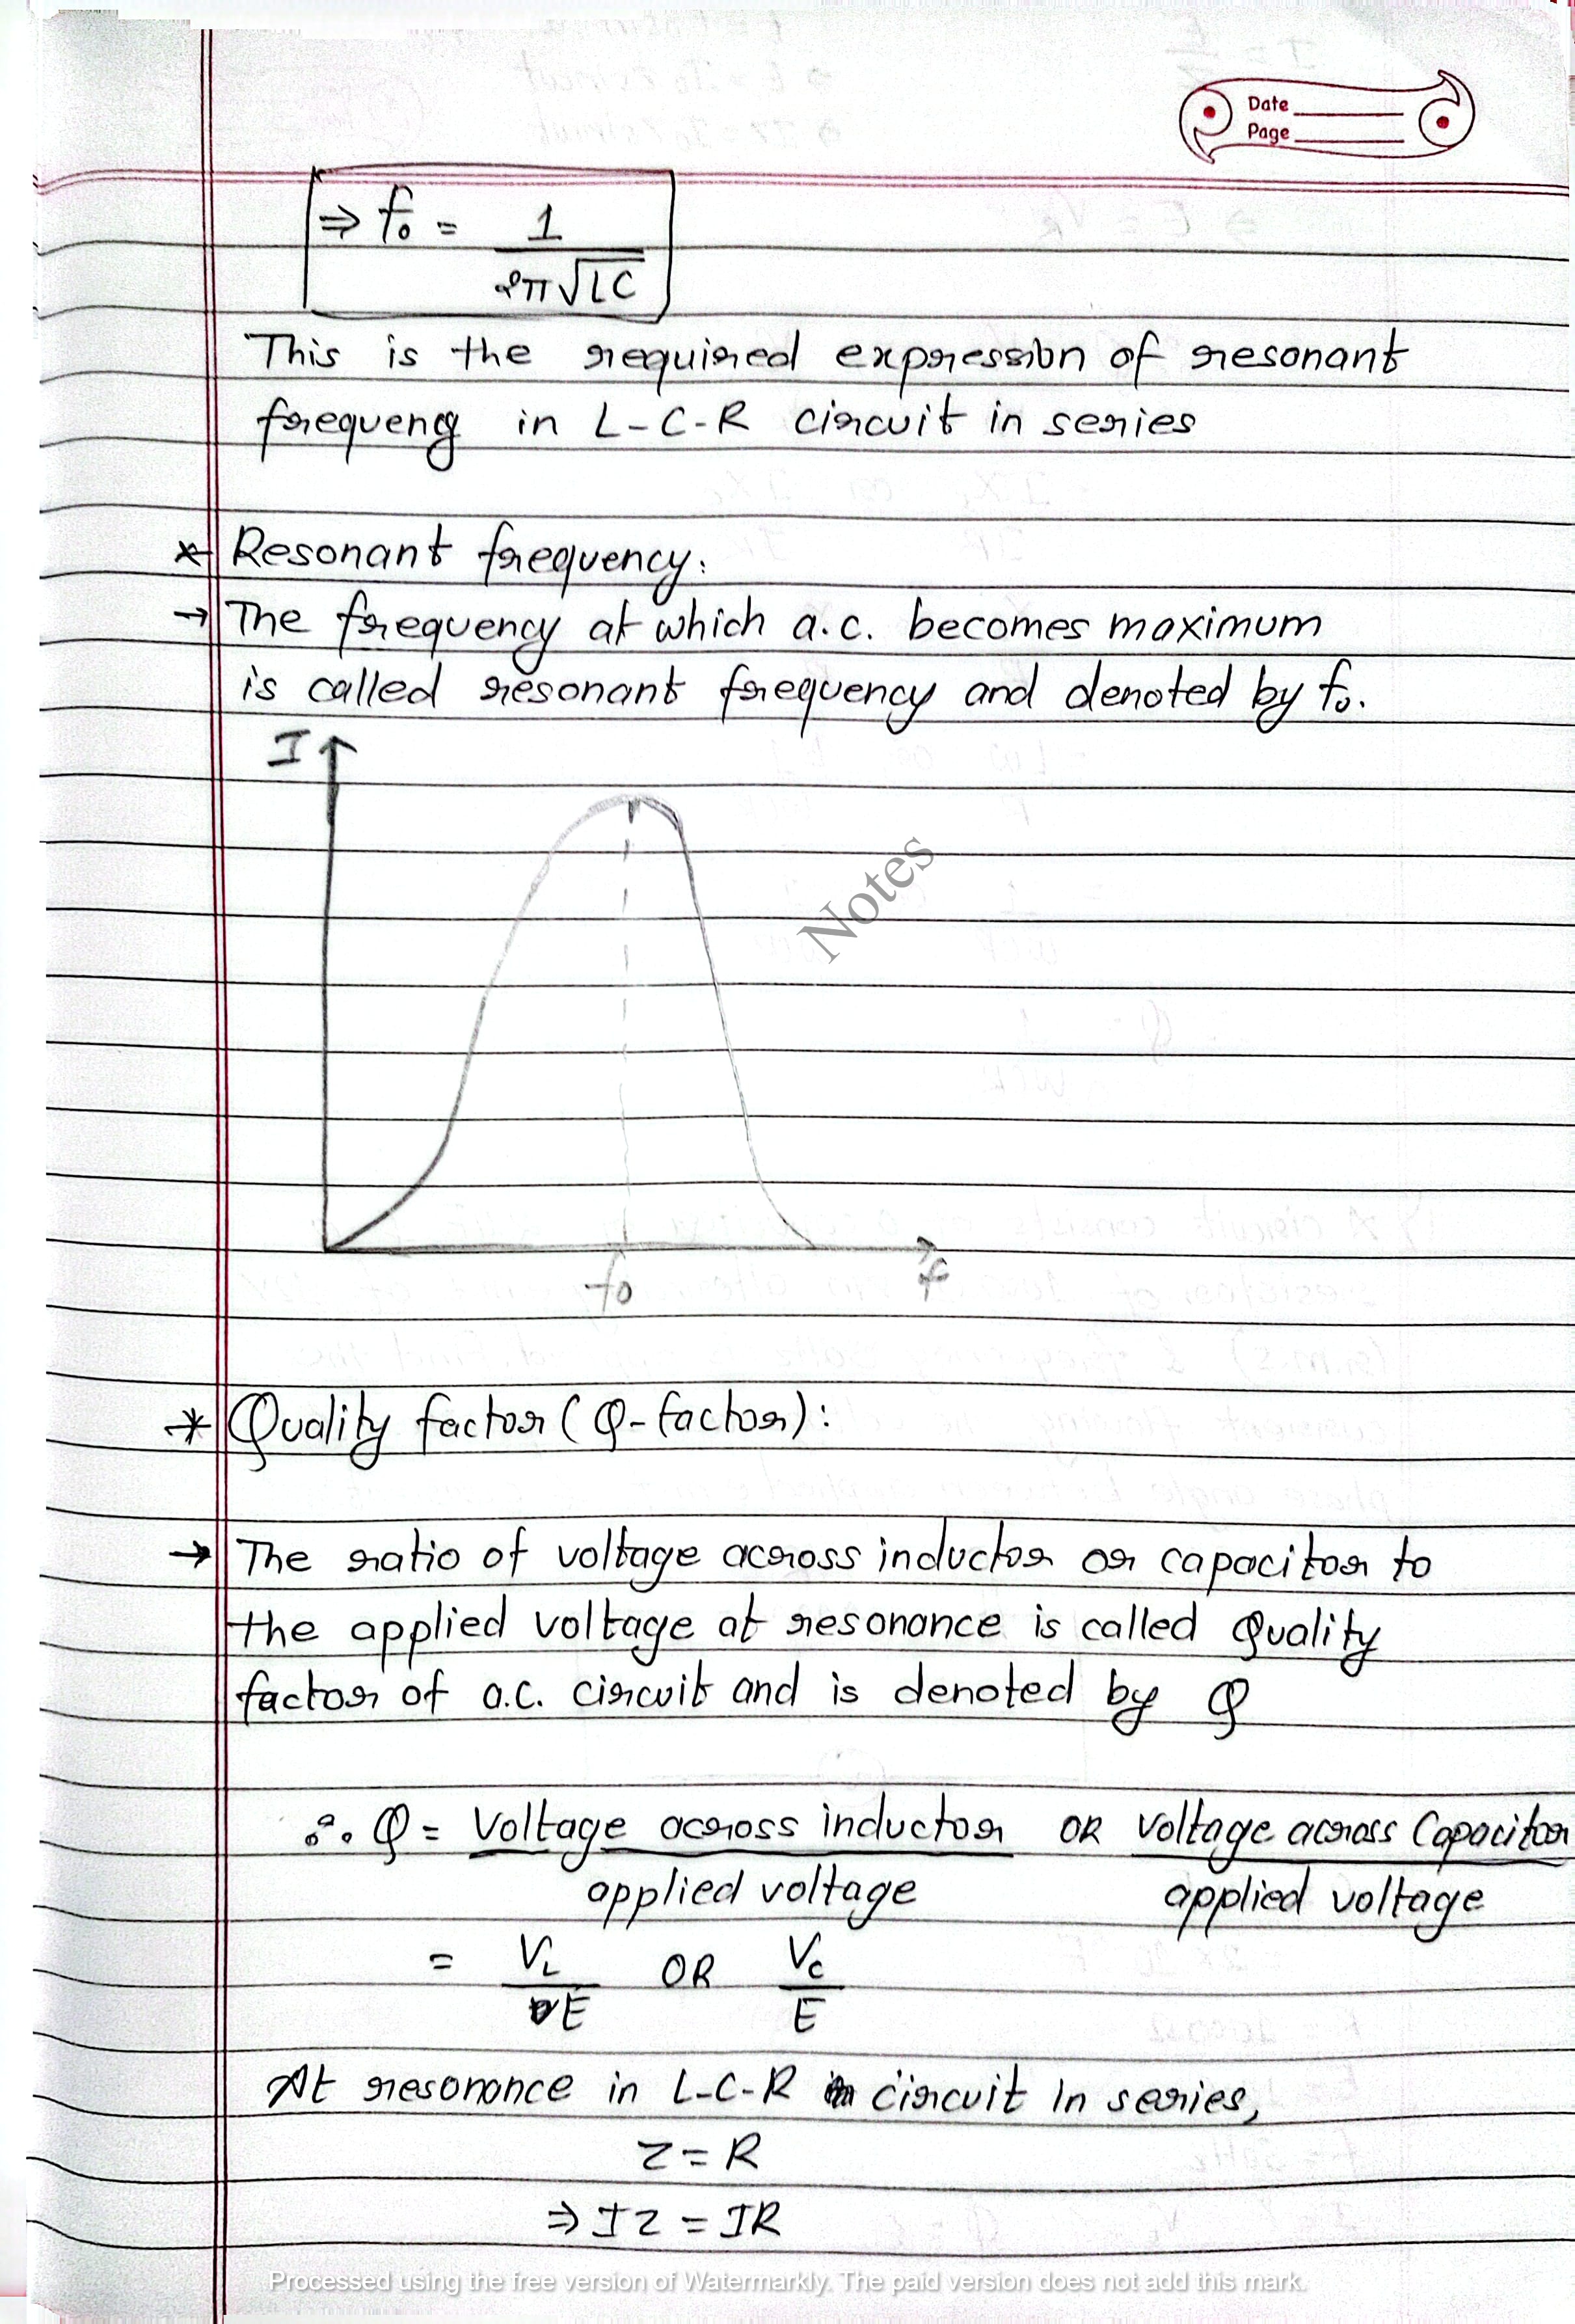 Date
Page
⇒ f₀ = 1
2π√LC
This is the required expression of resonant
frequency in L-C-R circuit in series
* Resonant frequency:
→ The frequency at which a.c. becomes maximum
is called resonant frequency and denoted by f₀.
I
Notes
f₀
f
* Quality factor (Q-factor):
→ The ratio of voltage across inductor or capacitor to
the applied voltage at resonance is called Quality
factor of a.c. circuit and is denoted by Q
∴ Q = Voltage across inductor OR Voltage across Capacitor
applied voltage applied voltage
= V_L OR V_C
E E
At resonance in L-C-R circuit In series,
Z = R
⇒ IZ = IR
Processed using the free version of Watermarkly. The paid version does not add this mark.